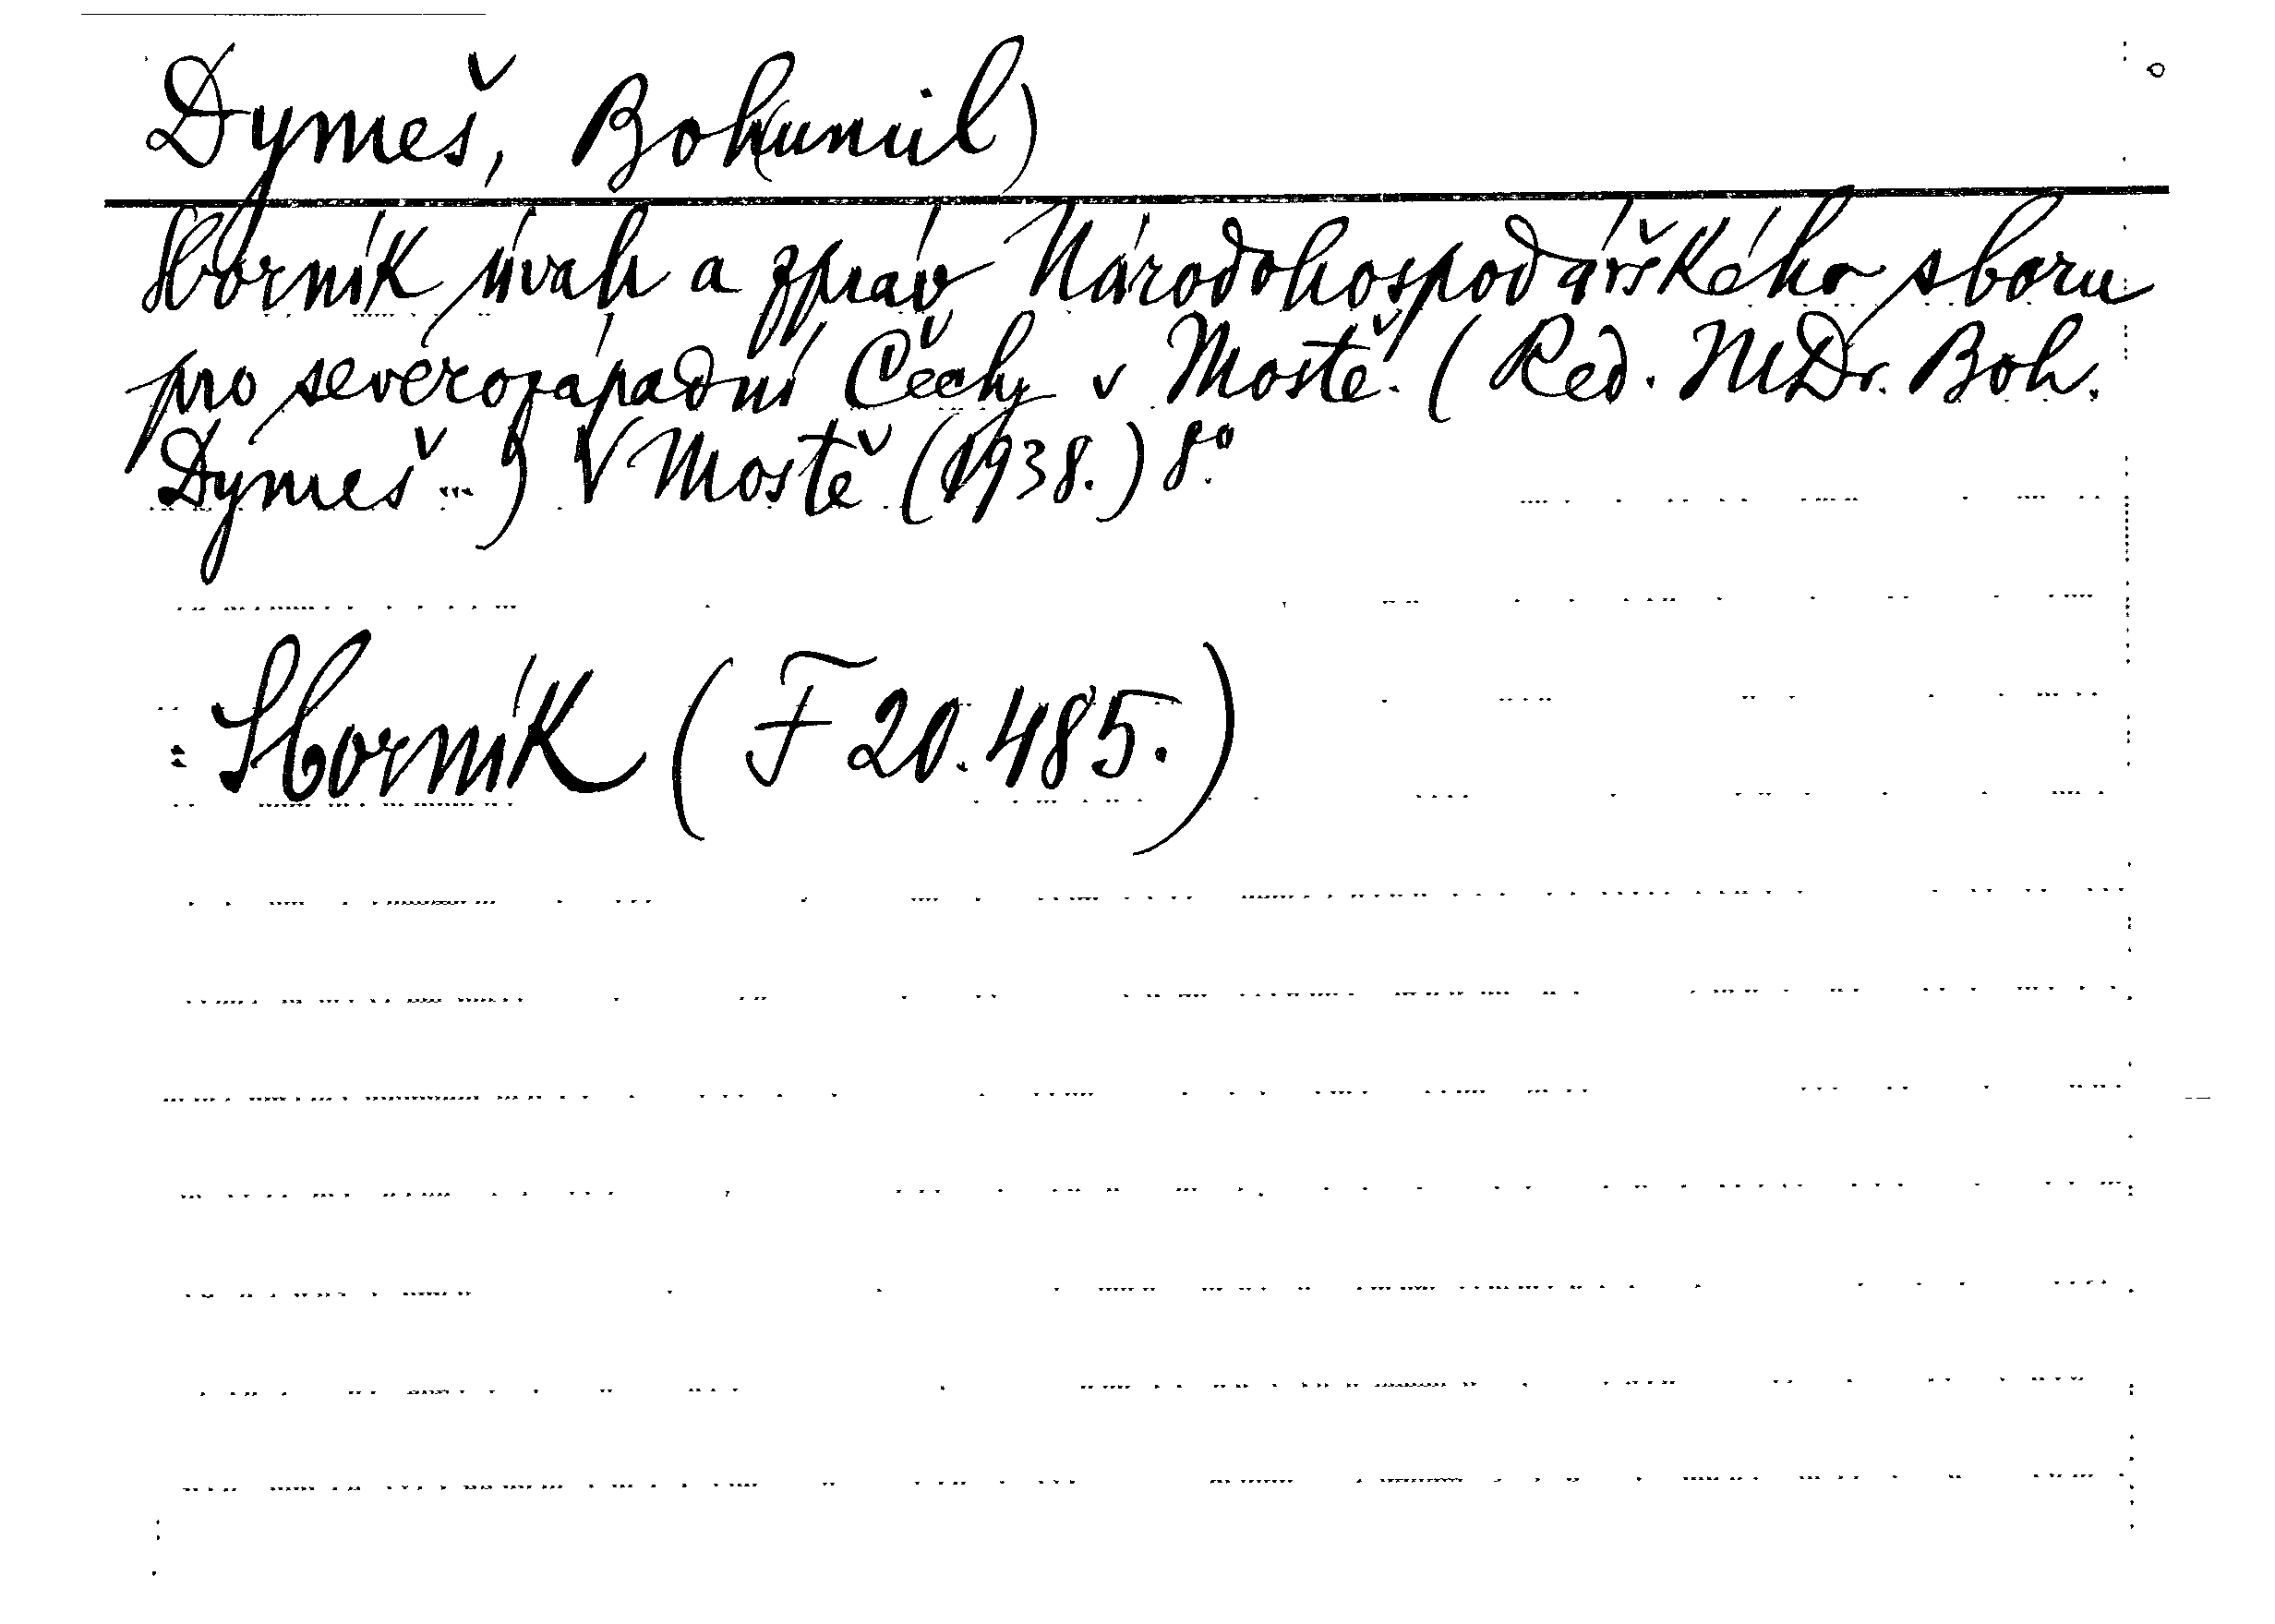 Dymeš, Boh(umil)
Sborník úvah a zpráv Národohospodářského sboru
pro severozápadní Čechy v Mostě. (Red. MDr. Boh.
Dymeš...) V Mostě (1938.) 8°.
Sborník (F 20.485.)